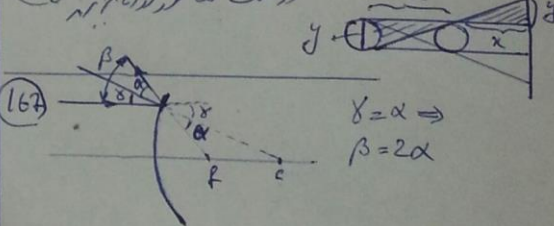 y
y
x
167
β
α
γ
γ
α
f
c
γ = α ⇒
β = 2α